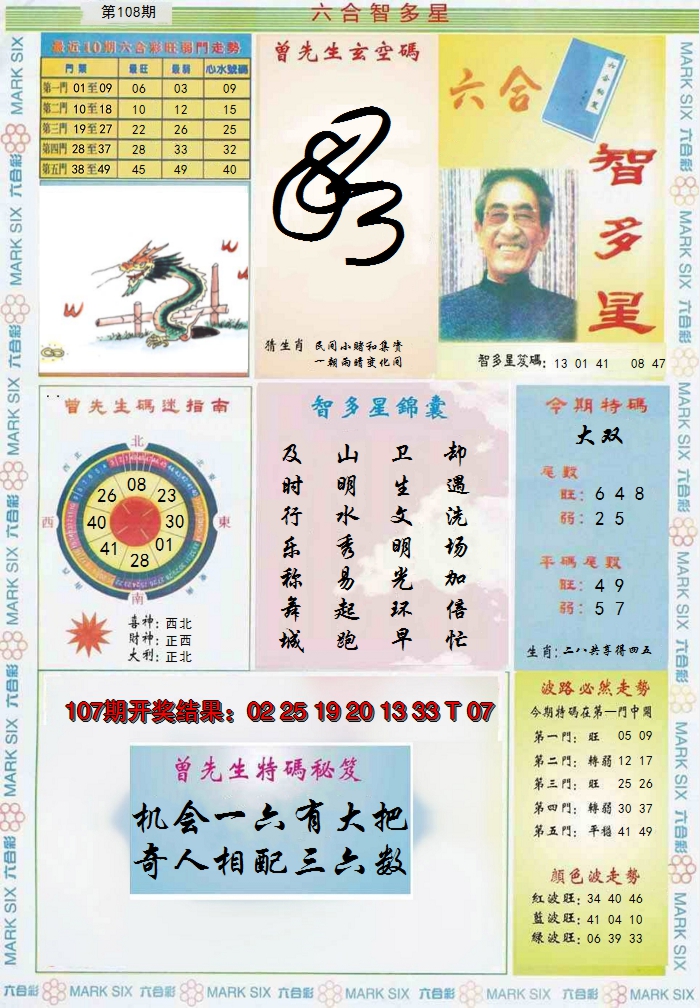 第108期
六合智多星
最近10期六合彩旺弱門走勢
門類 最旺 最弱 心水號碼
第一門 01至09 06 03 09
第二門 10至18 10 12 15
第三門 19至27 22 26 25
第四門 28至37 28 33 32
第五門 38至49 45 49 40
曾先生玄空碼
猜生肖 民间小赌和集资
一朝雨晴变化间
六合
六合秘笈
智多星
智多星笈碼: 13 01 41 08 47
曾先生碼迷指南
北
西北
東北
西
東
西南
東南
南
08
26 23
40 30
41 01
28
喜神: 西北
财神: 正西
大利: 正北
智多星錦囊
及时行乐称舞城
山明水秀易起跑
卫生文明光环早
却遇洗场加倍忙
今期特碼
大双
尾數
旺: 6 4 8
弱: 2 5
平碼尾數
旺: 4 9
弱: 5 7
生肖: 二八共享得四五
107期开奖结果: 02 25 19 20 13 33 T 07
曾先生特碼秘笈
机会一六有大把
奇人相配三六数
波路必然走勢
今期特碼在第一門中開
第一門: 旺 05 09
第二門: 轉弱 12 17
第三門: 旺 25 26
第四門: 轉弱 30 37
第五門: 平穩 41 49
顏色波走勢
紅波旺: 34 40 46
藍波旺: 41 04 10
綠波旺: 06 39 33
六合彩 MARK SIX 六合彩 MARK SIX 六合彩 MARK SIX 六合彩 MARK SIX 六合彩 MARK SIX